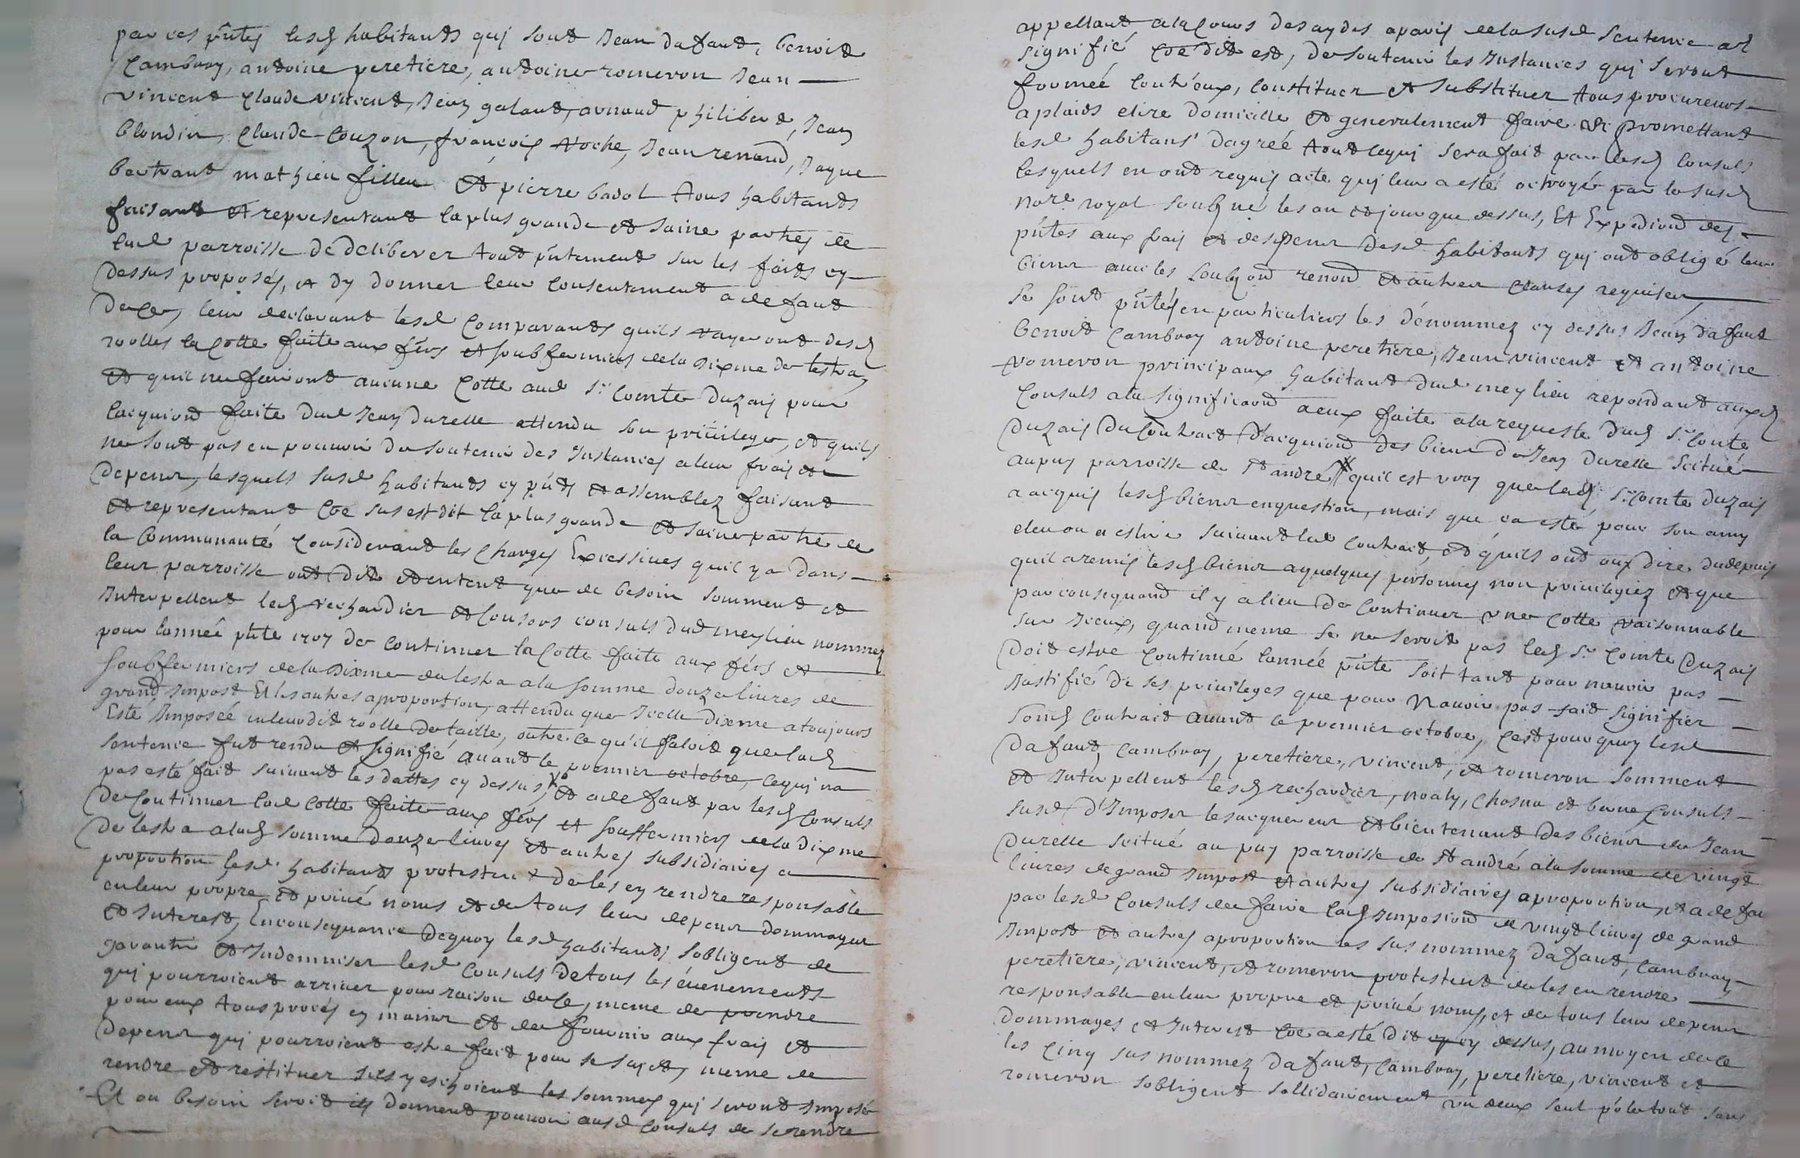 par ces pñtes lesd habitants qui sont Jean dafaut, benoit
Cambray, antoine peretiere, antoine romeron Jean
vincent Claude vincent, Jean galand, arnaud philibert, Jean
blondin, Claude Couzon, françois Roche, Jean renaud, Jaque
bertrant mathieu filleu et pierre badol tous habitants
faisant et representant la plus grande et saine parties de
lad parroisse de deliberer tout pñtement sur les faits cy
dessus proposés, et dy donner leur consentement a defaut
de ce, leur declarant lesd Comparants quils rayeront desd
roolles la Cotte faite aux fers et soubfermiers de la dixme de lestra,
et quil ne feront aucune Cotte aud Sr Comte Duzais pour
lacquiond faite dud Jean Durelle attendu son privilege, et quils
ne sont pas en pouvoir de soutenir des Instances a leur frais et
depens, lesquels susd habitants cy pñts et assemblez faisant
et representant Coe sus est dit la plus grande et saine partie de
la Communauté Considerant les Charges Excessives quil y a dans
leur parroisse ont dit et entent que de besoin somment et
Interpellent lesd rechardier et Consors consuls dud meylieu nommez
pour lannée pñte 1707 de continuer la Cotte faite aux fers et
soubfermiers de la dixme de lestra a la somme douze livres de
grand Impost Et les autres aproportion, attendu que Icelle dixme a toujours
Esté Imposée en leurdit roolle de taille, outre ce qu'il faloit que lad
sentence fut rendu et signifié avant le premier octobre, ce qui na
pas esté fait suivant les dattes cy dessus, et a defaut par lesd Consuls
de Continuer lad Cotte faite aux fers et souffermiers de la dixme
de lestra a lad somme douze livres et autres subsidiaires a
proportion lesd habitants protestent de les en rendre responsable
en leur propre et privé noms et de tous leur depens dommages
et Interest, En consequance dequoy lesd habitants sobligent de
garantir et Indemniser lesd Consuls de tous les évenements
qui pourroient arriver pour raison de ce, meme de prendre
pour eux tous procés en maner et de fournir aux frais et
depens qui pourroient estre fait pour ce sujet, meme de
rendre et restituer sils y eschoient les sommes qui seront Imposée
Et ou besoin seroit ils donnent pouvoir ausd Consuls de se rendre
appellant a la Cours des aydes a paris de la susd sentence a Eux
signifié Coe dit est, de soutenir les Instances qui seront
formée Contr'eux, Constituer et substituer tous procureurs
a plaids elire domicille et generalement faire et promettant
lesd habitans d'agrée tout ce qui sera fait par lesd Consuls
lesquels en ont requis acte qui leur a esté octroyé par le susd
nore royal soubsné les an et jour que dessus, Et Expedions des
pñtes aux frais et despens desd habitants qui ont obligé leur
biens avec les soubson renond et autres clauses requises,
se sont pñtés en particuliers les dénommez cy dessus Jean dafaut
benoit Cambray antoine peretiere, Jean vincent et antoine
romeron principaux habitant dud meylieu repondant auxd
Consuls a la signification a eux faite a la requeste dud Sr Comte
Duzais du Contract d'acquiond des biens de Jean Durelle Scitué
au puy parroisse de st andré, quil est vray que led Sr Comte Duzais
a acquis lesd biens en question, mais que ca esté pour son amy
eleu ou a eslire suivant led Contract, et quils ont ouy dire du depuis
quil a remis lesd biens a quelques personnes non privilegiez et que
par consequand il y a lieu de Continuer une Cotte raisonnable
sur Iceux, quand meme se ne seroit pas led Sr Comte Duzais
doit estre Continué lannée pñte soit tant pour navoir pas
Justifié de ses privileges que pour navoir pas fait signifier
sond Contract avant le premier octobre, Cest pourquoy lesd
dafaut, Cambray, peretiere, vincent, et romeron somment
et Interpellent lesd rechardier, noaly, Chosna et bune Consuls
susd d'Imposer lesacquereur et bien tenant des biens de Jean
Durelle scitué au puy parroisse de St andré a la somme de vingt
livres de grand Impost et autres subsidiaires aproportion, et a defau
par lesd Consuls de faire lad Imposiond de vingt livres de grand
Impost et autres aproportion les sus nommez dafaut, Cambray
peretiere, vincent, et romeron protestent de les en rendre
responsable en leur propre et privé noms, et de tous leur depens
dommages et Interest Coe a esté dit cy dessus, au moyen de ce
les Cinq sus nommez dafaut, Cambray, peretiere, vincent et
romeron sobligent sollidairement un deux seul p'o le tout sans